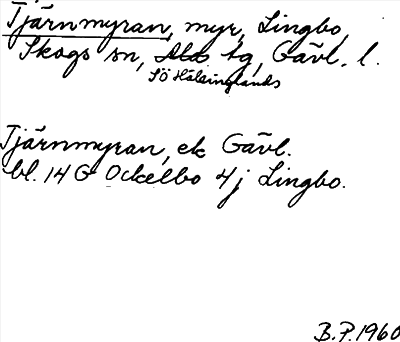 Tjärnmyran, myr, Lingbo,
Skogs sn, Ala tg, Gävl. l.
Sö Hälsinglands
Tjärnmyran, ek Gävl.
bl. 14 G Ockelbo 4 j Lingbo.
B.P. 1960